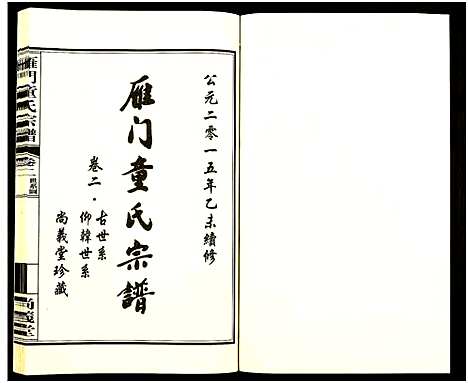 公元二零一五年乙未續修
雁门童氏宗譜
卷二·古世系
仰韓世系
尚義堂珍藏
雁门童氏宗譜
卷二
世系圖
尚義堂